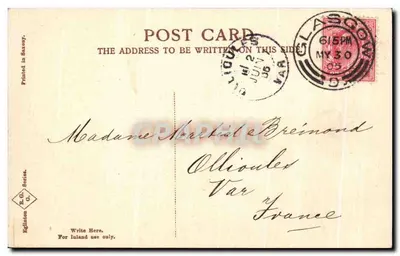 POST CARD
THE ADDRESS TO BE WRITTEN ON THIS SIDE
GLASGOW
6 15 PM
MY 30
05
OLLIOULES
2
JUIN
05
VAR
Printed in Saxony.
Madame Bréimond
Ollioules
Var
France
Eglinton
E.
Series.
Write Here.
For Inland use only.